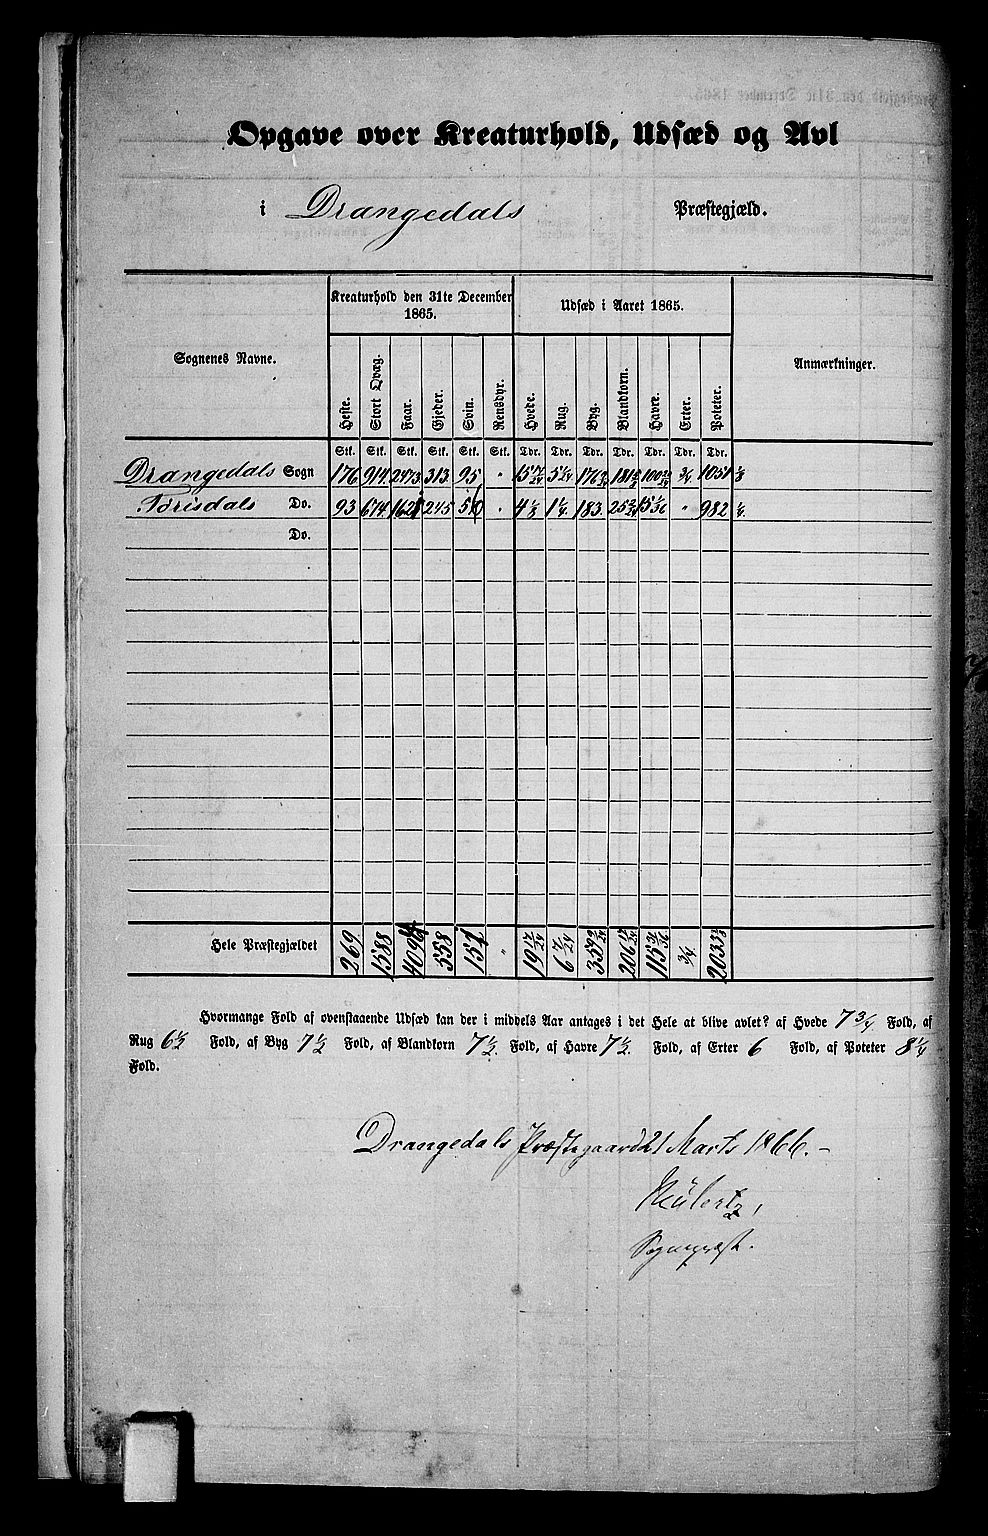 Opgave over Kreaturhold, Udsæd og Avl
i Drangedals Præstegjæld.
Sognenes Navne.
Kreaturhold den 31te December 1865.
Udsæd i Aaret 1865.
Anmærkninger.
Heste. Stort Qvæg. Faar. Gjeder. Svin. Rensdyr. Hvede. Rug. Byg. Blandkorn. Havre. Erter. Poteter.
Stk. Stk. Stk. Stk. Stk. Stk. Tdr. Tdr. Tdr. Tdr. Tdr. Tdr. Tdr.
Drangedals Sogn 176 914 2473 313 95 " 15 17/24 5 1/24 176 181 100 3/4 1051 1/8
Törisdals Do. 93 674 1621 245 56 " 4 1/3 1 1/4 183 25 15 1/36 " 982 1/4
Do.
Hele Præstegjældet 269 1588 4094 558 151 " 19 17/24 6 7/24 359 206 17/24 115 3/4 2033
Hvormange Fold af ovenstaaende Udsæd kan der i middels Aar antages i det Hele at blive avlet? af Hvede 7 3/4 Fold, af
Rug 6 1/2 Fold, af Byg 7 1/2 Fold, af Blandkorn 7 1/2 Fold, af Havre 7 1/2 Fold, af Erter 6 Fold, af Poteter 8 1/4
Fold.
Drangedals Præstegaard 21 Marts 1866.
Sognepræst.